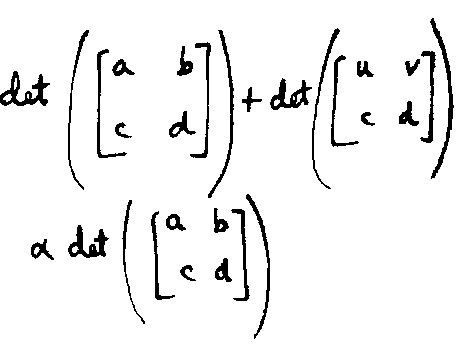 det ([a b c d]) + det ([u v c d])
α det ([a b c d])